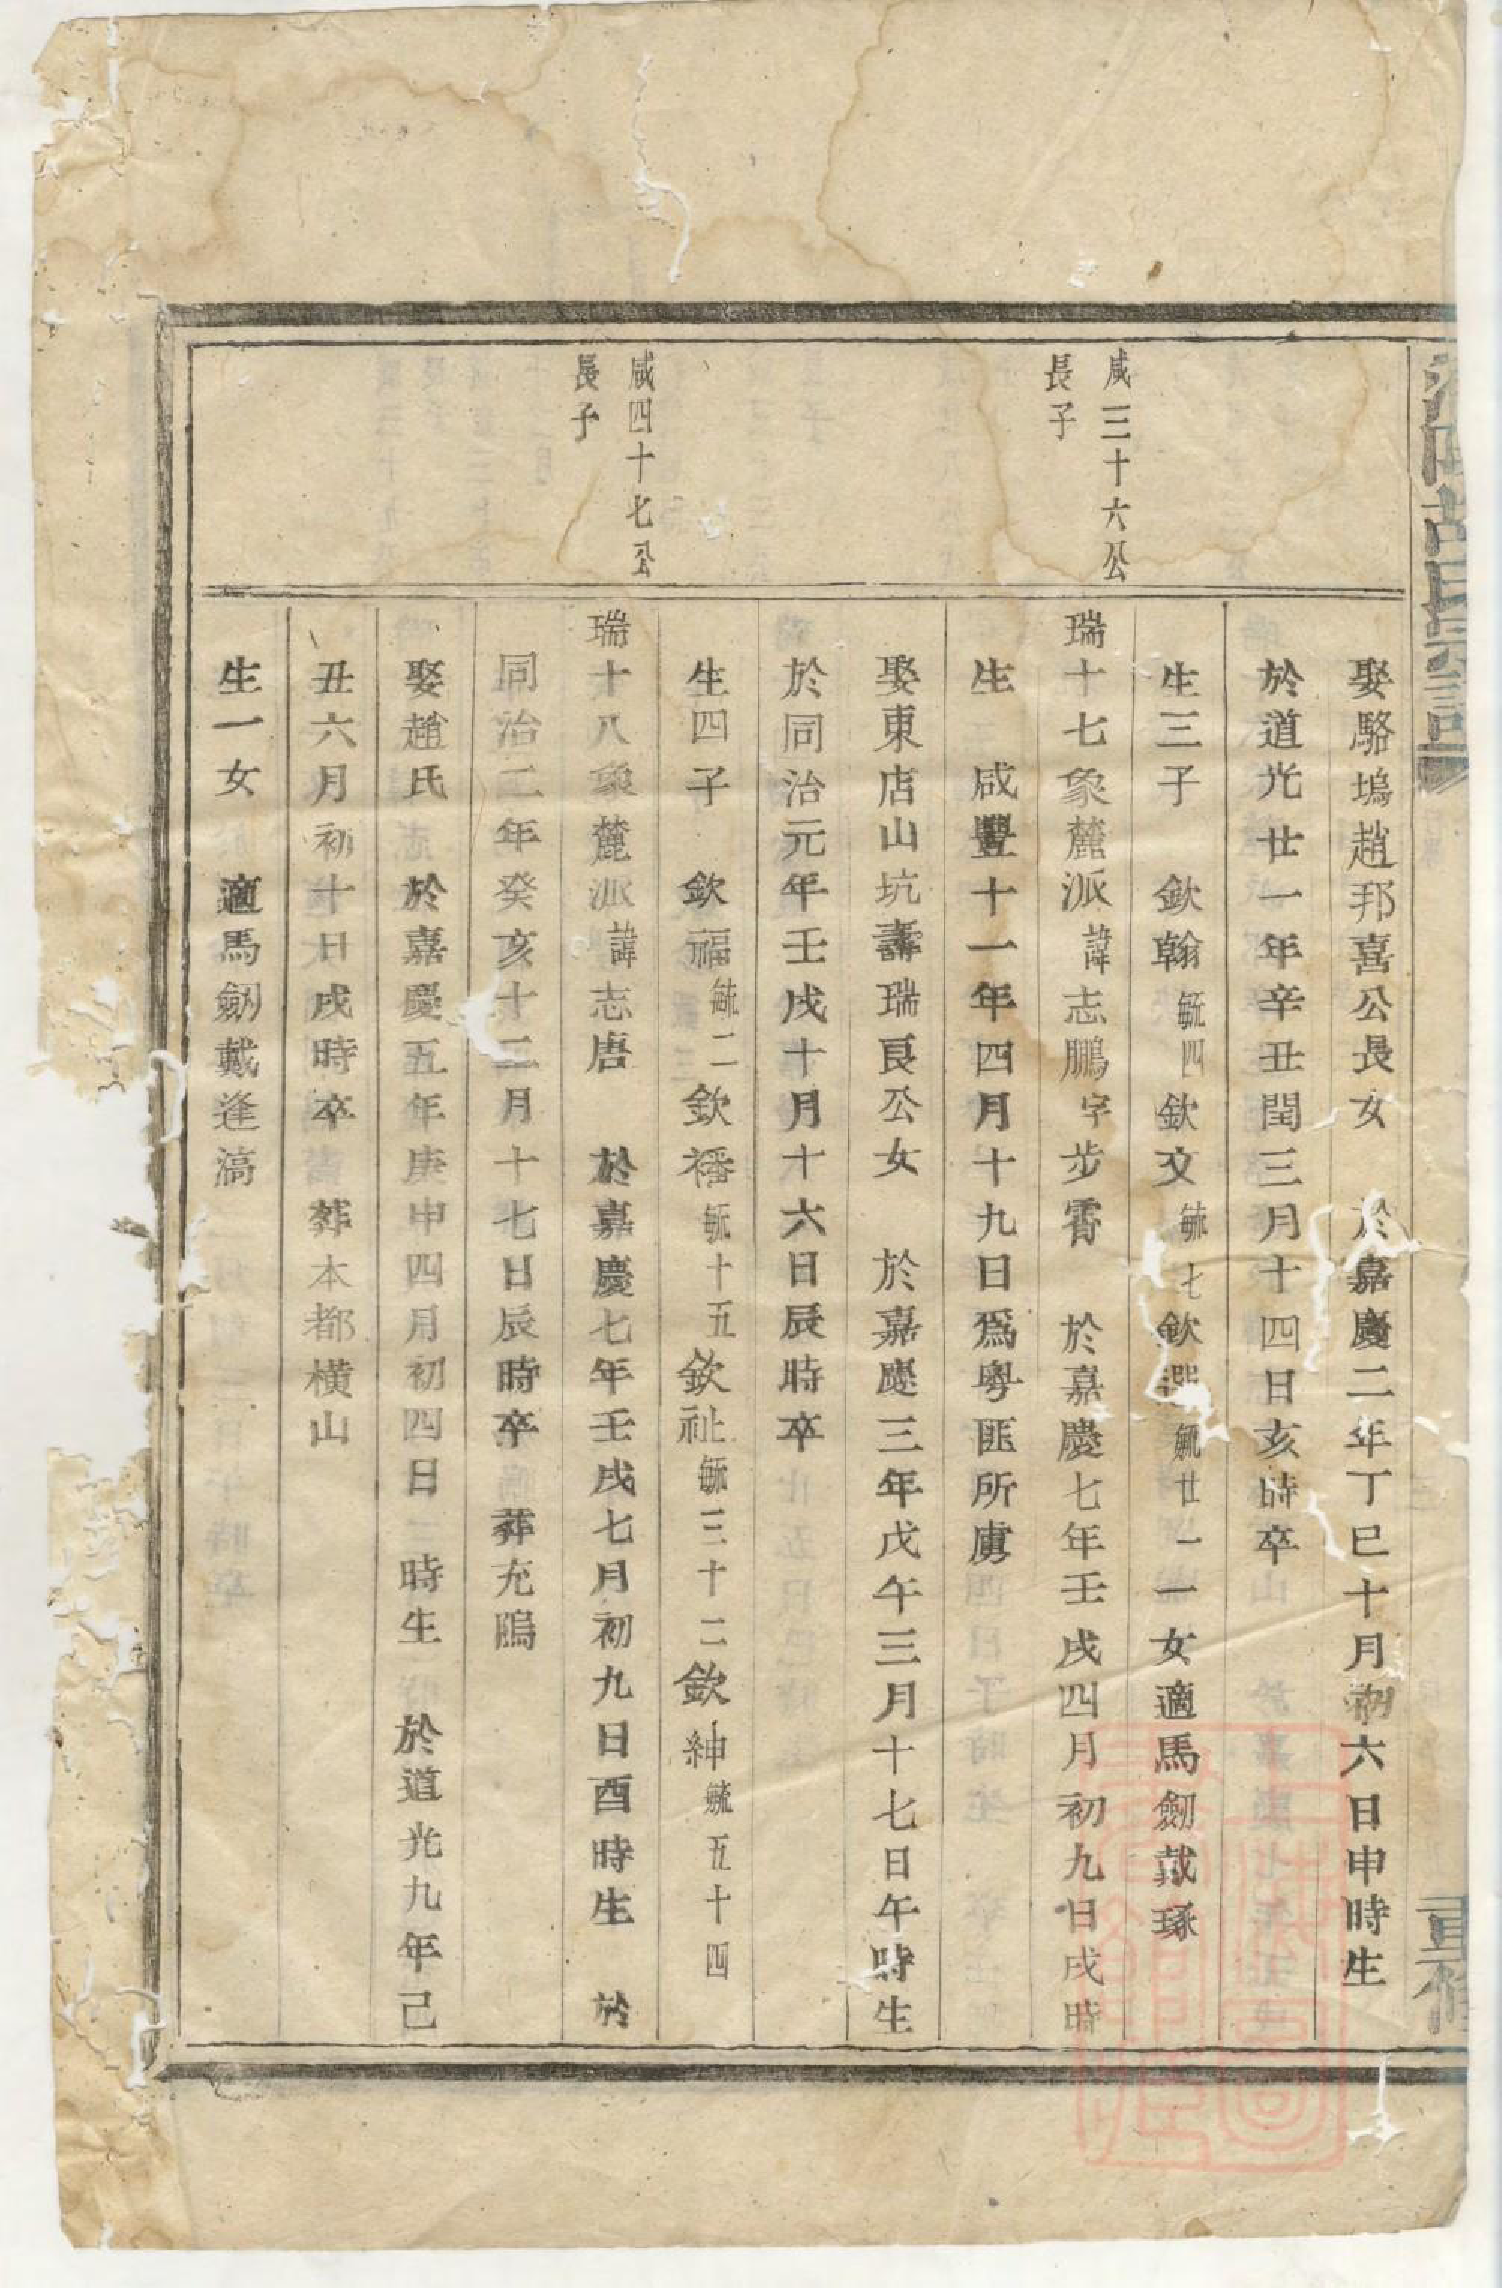 胡氏宗譜
重修
娶駱塢趙邦喜公長女　於嘉慶二年丁巳十月初六日申時生
於道光廿一年辛丑閏三月十四日亥時卒
生三子　欽翰毓四欽文毓七欽選毓廿一一女適馬劒戴琢
咸三十六公
長子
瑞十七象麓派諱志鵬字步霄　於嘉慶七年壬戌四月初九日戌時
生　咸豐十一年四月十九日爲粵匪所虜
娶東店山坑壽瑞良公女　於嘉慶三年戊午三月十七日午時生
於同治元年壬戌十月十六日辰時卒
生四子　欽福毓二欽襎毓十五欽祉毓三十二欽紳毓五十四
咸四十七公
長子
瑞十八象麓派諱志唐　於嘉慶七年壬戌七月初九日酉時生　於
同治二年癸亥十二月十七日辰時卒　葬充鴫
娶趙氏　於嘉慶五年庚申四月初四日時生　於道光九年己
丑六月初十日戌時卒　葬本都橫山
生一女　適馬劒戴逢滈